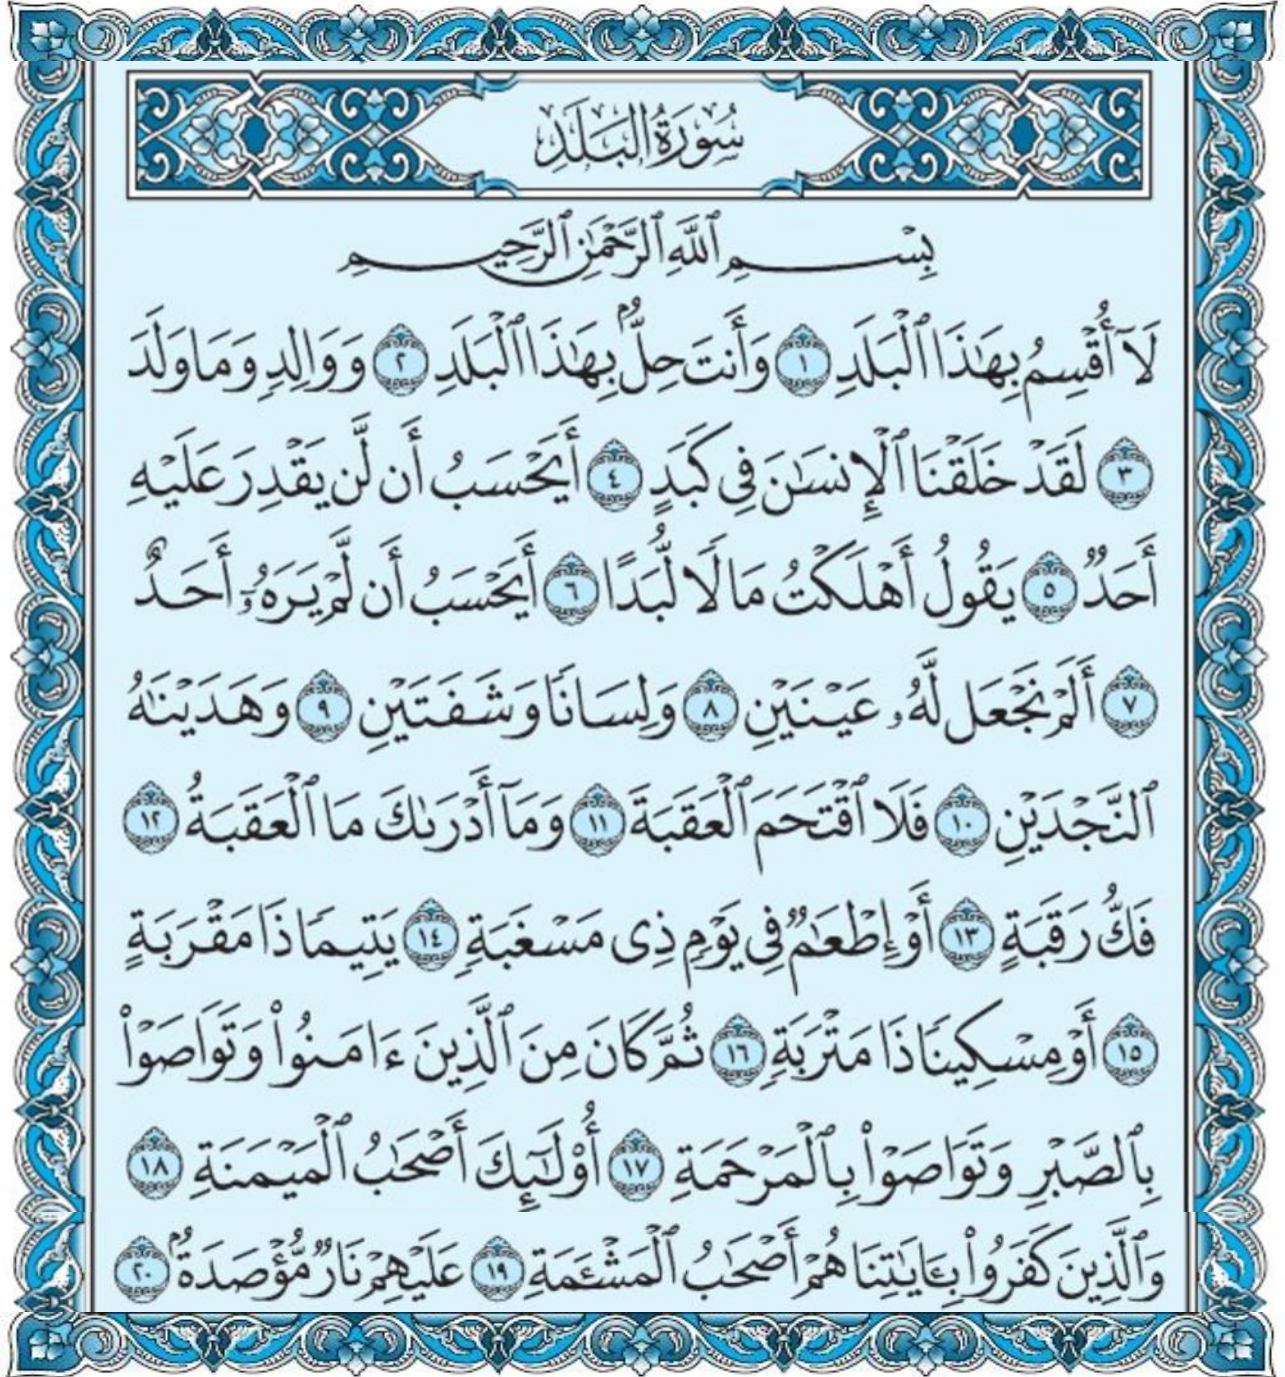 سُورَةُ البَلَدِ
بِسْمِ ٱللَّهِ ٱلرَّحْمَٰنِ ٱلرَّحِيمِ
لَآ أُقْسِمُ بِهَٰذَا ٱلْبَلَدِ ١ وَأَنتَ حِلٌّۢ بِهَٰذَا ٱلْبَلَدِ ٢ وَوَالِدٍ وَمَا وَلَدَ
٣ لَقَدْ خَلَقْنَا ٱلْإِنسَٰنَ فِى كَبَدٍ ٤ أَيَحْسَبُ أَن لَّن يَقْدِرَ عَلَيْهِ
أَحَدٌ ٥ يَقُولُ أَهْلَكْتُ مَالًا لُّبَدًا ٦ أَيَحْسَبُ أَن لَّمْ يَرَهُۥٓ أَحَدٌ
٧ أَلَمْ نَجْعَل لَّهُۥ عَيْنَيْنِ ٨ وَلِسَانًا وَشَفَتَيْنِ ٩ وَهَدَيْنَٰهُ
ٱلنَّجْدَيْنِ ١٠ فَلَا ٱقْتَحَمَ ٱلْعَقَبَةَ ١١ وَمَآ أَدْرَىٰكَ مَا ٱلْعَقَبَةُ ١٢
فَكُّ رَقَبَةٍ ١٣ أَوْ إِطْعَٰمٌ فِى يَوْمٍ ذِى مَسْغَبَةٍ ١٤ يَتِيمًا ذَا مَقْرَبَةٍ
١٥ أَوْ مِسْكِينًا ذَا مَتْرَبَةٍ ١٦ ثُمَّ كَانَ مِنَ ٱلَّذِينَ ءَامَنُوا۟ وَتَوَاصَوْا۟
بِٱلصَّبْرِ وَتَوَاصَوْا۟ بِٱلْمَرْحَمَةِ ١٧ أُو۟لَٰٓئِكَ أَصْحَٰبُ ٱلْمَيْمَنَةِ ١٨
وَٱلَّذِينَ كَفَرُوا۟ بِـَٔايَٰتِنَا هُمْ أَصْحَٰبُ ٱلْمَشْـَٔمَةِ ١٩ عَلَيْهِمْ نَارٌ مُّؤْصَدَةٌۢ ٢٠